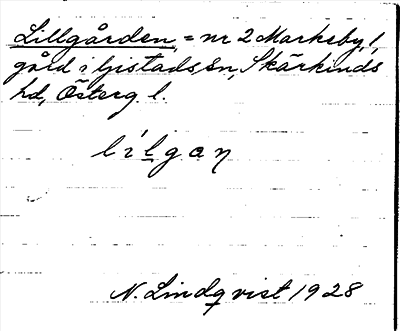 Lillgården, = nr 2 Markeby, 1
gård i Gistads sn, Skärkinds
hd, Österg. l.
lílgan
N. Lindqvist 1928